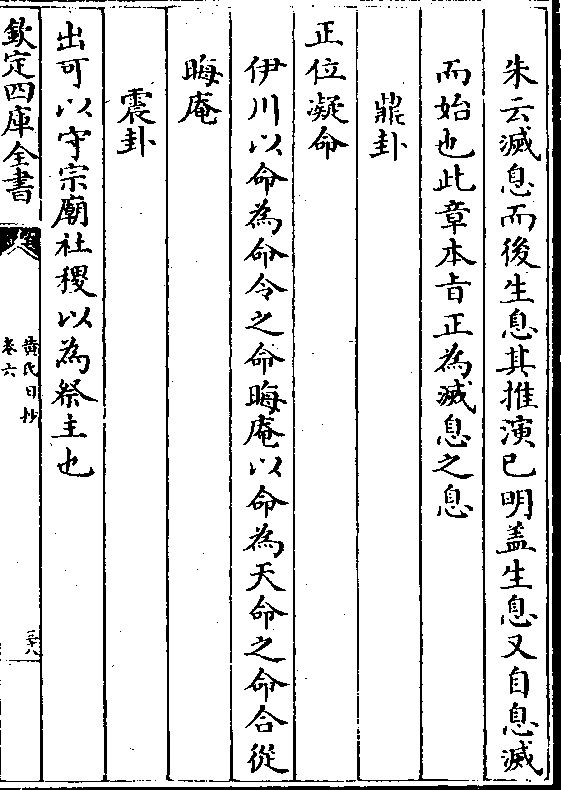 朱云滅息而後生息其推演已明盖生息又自息滅
而始也此章本㫖正為滅息之息
鼎卦
正位凝命
伊川以命為命令之命晦庵以命為天命之命合從
晦庵
震卦
出可以守宗廟社稷以為祭主也
欽定四庫全書
黄氏日抄
卷六
三十八